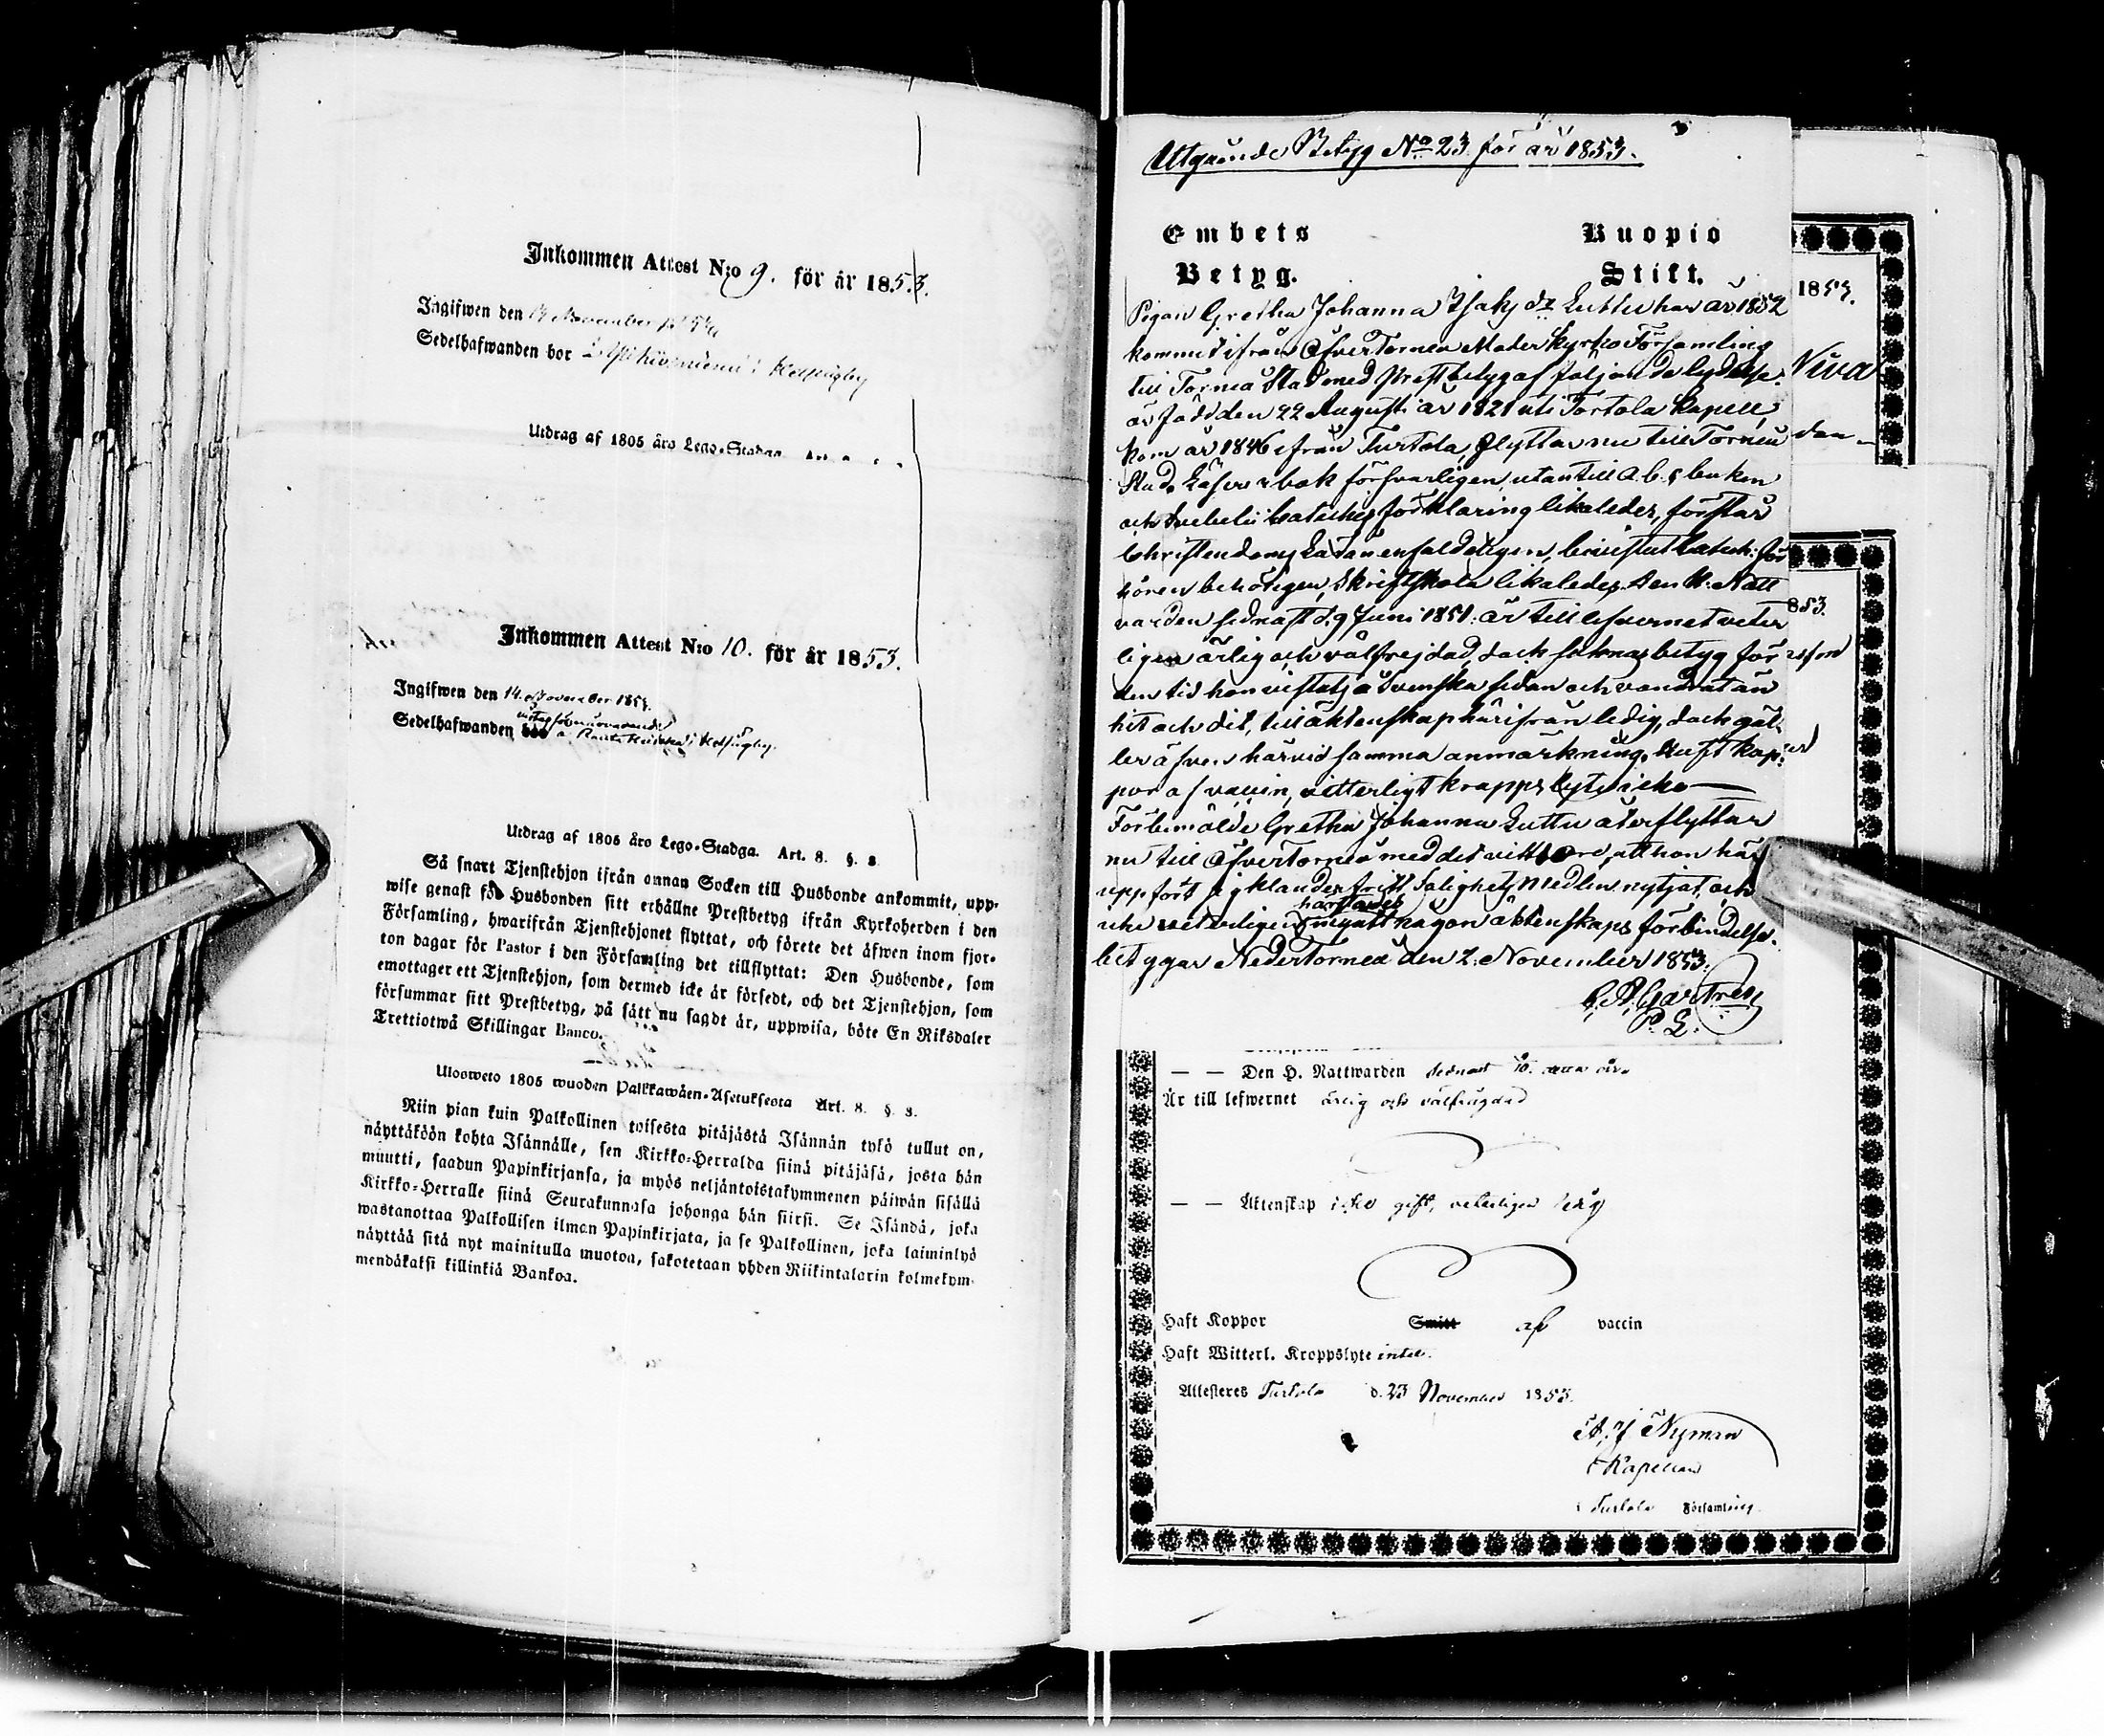 Inkommen Attest N:o 9. för år 1853.
Ingifwen den November
Sedelhafwanden bor i
Utdrag af 1805 års Lego-Stadga.
Inkommen Attest N:o 10. för år 1853.
Ingifwen den 14 November 1853.
Sedelhafwanden bor
Utdrag af 1805 års Lego-Stadga. Art. 8. §. 3.
Så snart Tjenstehjon ifrån annan Socken till Husbonde ankommit, upp-
wise genast för Husbonden sitt erhållne Prestbetyg ifrån Kyrkoherden i den
Församling, hwarifrån Tjenstehjonet flyttat, och förete det äfwen inom fjor-
ton dagar för Pastor i den Församling det tillflyttat: Den Husbonde, som
emottager ett Tjenstehjon, som dermed icke är försedt, och det Tjenstehjon, som
försummar sitt Prestbetyg, på sätt nu sagdt är, uppwisa, böte En Riksdaler
Trettiotwå Skillingar Banco.
Ulosweto 1805 wuoden Palkkawäen-Asetuksesta Art. 8. §. 3.
Niin pian kuin Palkollinen toisesta pitäjästä Isännän tykö tullut on,
näyttäköön kohta Isännälle, sen Kirkko-Herralda siinä pitäjäsä, josta hän
muutti, saadun Papinkirjansa, ja myös neljäntoistakymmenen päiwän sisällä
Kirkko-Herralle siinä Seurakunnasa johonga hän siirsi. Se Isändä, joka
wastanottaa Palkollisen ilman Papinkirjata, ja se Palkollinen, joka laiminlyö
näyttää sitä nyt mainitulla muotoa, sakotetaan yhden Riikintalarin kolmekym-
mendäkaksi killinkiä Bankoa.
Utgående Betyg No 23 för år 1853.
Embets Kuopio
Betyg. Stift.
Pigan Gretha Johanna Isaksdr Luttu har år 1852
kommit ifrån ÖfverTorneå Moderkyrko Församling
till Torneå Stad med Prestbetyg af följande lydelse:
är född den 22 Augusti år 1821 uti Turtola Kapell,
kom år 1846 ifrån Turtola, flyttar nu till Torneå
Stad. Läser i bok försvarligen, utantill A.b.c. boken
och Svebelii Cateches förklaring likaledes, förstår
Christendoms Lädan enfaldeligen, bevistat Catech: för
hören behörigen, Skriftskola likaledes. Den H. Natt
varden sednast d. 9 Juni 1851. är till lefvernet veter
ligen ärlig och välfrejdad, dock saknas betyg för
den tid hon vistats i Svenska sidan och vandrat än
hit och dit, till äktenskap härifrån ledig, dock gäl-
ler äfven härvid samma anmärkning. Haft kop-
por af vaccin, vitterligt kroppslyte icke —
Förbemälde Gretha Johanna Luttu återflyttar
nu till ÖfverTorneå med det vittsord, att hon här
uppfört sig klanderfritt, Salighets medlen nytjat, och
icke veterligen härstädes ingått någon äktenskaps förbindelse.
betygar NederTorneå den 2. November 1853.
1853.
Niva
853.
— — Den H. Nattwarden sednast
Är till lefwernet ärlig och välfrägdad
— — Äktenskap icke gift, veterligen ledig
Haft Koppor Smitt af vaccin
Haft Witterl. Kroppslyte intet.
Attesteres Turtola d. 23 November 1853.
A. J. Nyman
Kapellan
Turtola Församling.